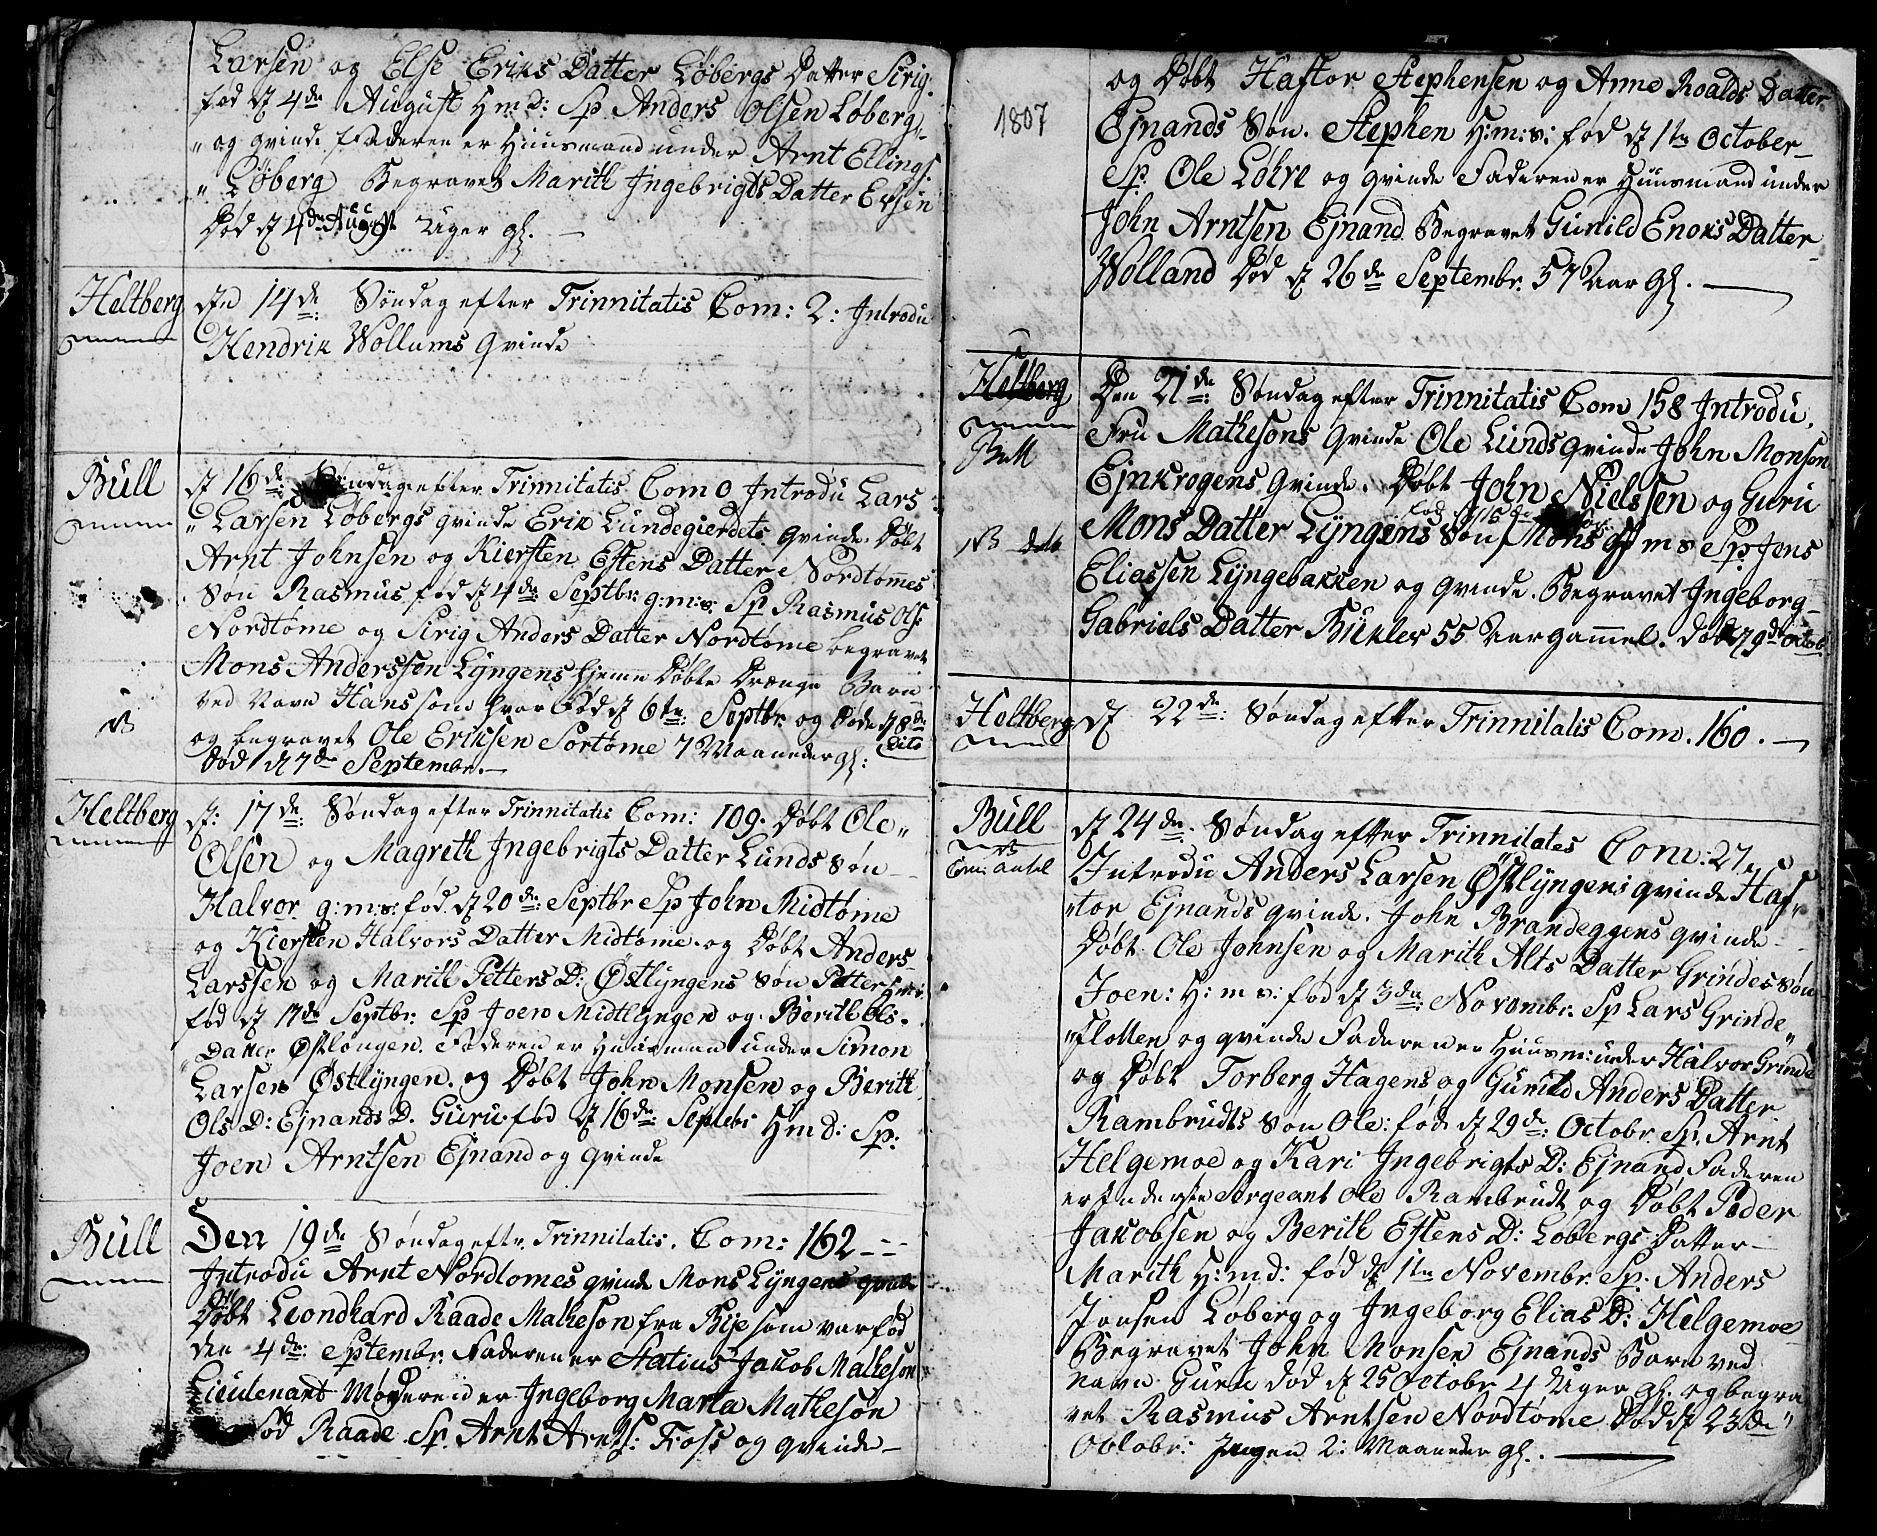 Larsen og Else Eriks Datter Løbergs Datter Sirig.
fød d 4de August H.m.D: Sp Anders Olsen Løberg
" og qvinde Faderen er Huusmand under Arnt Ellings.
" Løberg Begravet Marith Ingebrigts Datter
Død d 4de August Uger gl.
Heltberg
den 14de: Søndag efter Trinnitatis Com: 2: Introdu
Hendrik Wollums qvinde
Büll
d 16de: Søndag efter Trinnitatis Com 0 Introdu Lars
" Larsen Løbergs qvinde Erik Lundegierdets qvinde. Døbt
Arnt Johnsen og Kiersten Estens Datter Nordtømes
Søn Rasmus fød d 4de Septbr: g:m:s: Sp Rasmus Ols:
Nordtøme og Sirig Anders Datter Nordtøme begravet
Mons Anderssen Lyngens hjemme Døbte Drænge Barn
NB
ved Navn Hans som var Fød d 6te: Septbr og Døde d 8de
Dito
og begravet Ole Eriksen Sortøme 7 Maaneder gl:
Død d 7de Septembr.
Heltberg
d: 17de: Søndag efter Trinnitatis Com: 109. Døbt Ole "
Olsen og Magreth Ingebrigts Datter Lunds Søn
Halvor g:m:s: fød d 20de: Septbr Sp John Midtøme
og Kiersten Halvors Datter Midtøme. og Døbt Anders
Larssen og Marith Petters D: Østlyngens Søn Petter H:m:s:
fød d 17de Septbr: Sp Joen Midtlyngen og Berith Ols.
" Datter Østlongen. Faderen er Huusman under Simon
Larsen Østlyngen. og Døbt John Monsen og Berith
Ols D: Ejnands D. Guru. fød d 16de Septebr H m D: Sp:
Joen Arntsen Ejnand og qvinde
Büll
Den 19de Søndag eftr. Trinnitatis. Com: 162
Introdu Arnt Nordtomes qvinde Mons Lyngens qvinde
Døbt Leondhard Raade Matheson fra Bye som var fød
den 4de: Septembr. Faderen er Statius Jakob Matheson
Lieutenant Moderen er Ingeborg Marta Matheson
fød Raade. Sp. Arnt Arnts: Foss og qvinde
1807
og Døbt Haftor Stephensen og Anne Roalds Datter
Ejnands Søn. Stephen H:m:s: fød d 1te October
Sp. Ole Løhre og qvinde Faderen er Huusmand under
John Arntsen Ejnand. Begravet Gunild Enoks Datter
Wolland Død d 26de Septembr. 57 Aar gl.
Heltberg
Den 21de: Søndag efter Trinnitatis Com 158 Introdu.
Fru Mathesons qvinde Ole Lunds qvinde John Monsen
Büll
Ejnkrogens qvinde. Døbt John Nielssen og Guru
fød d 15de
NB
Mons Datter Lyngens Søn Mons H m s Sp: Jens
Eliassen Lyngebakken og qvinde. Begravet Ingeborg
Gabriels Datter Bükler 55 Aar gammel. Død d 9de Octob.
Heltberg
d 22de: Søndag efter Trinnitatis Com. 160.
Büll
d 24de. Søndag efter Trinnitates Com: 27
NB
Com: antal
Introdu Anders Larsen Østlyngens qvinde Haf
" tor Ejnands qvinde. John Brandeggens qvinde
Døbt Ole Johnsen og Marith Alts Datter Grindes søn
Joen: H: m s: fød d 3de: Novembr. Sp Lars Grinde "
" flotten og qvinde Faderen er Huusm: under Halvor Grinde
og Døbt Torberg Hagens og Gunild Anders Datter
Rambrudts Søn Ole: fød d 29de: Octobr. Sp. Arnt
Helgemoe og Kari Ingebrigts D: Ejnand Faderen
er Sergeant Ole Rambrudt og Døbt Peder
Jakobsen og Berith Estens D: Løbergs Datter
Marith H:m d: fød d 1te Novembr. Sp. Anders
Jonsen Løberg og Ingeborg Elias D: Helgemoe
Begravet John Monsen Ejnands Barn ved
navn Guru død d 25 Octobr 4 Uger gl. og begra
vet Rasmus Arntsen Nordtøme Død d 23de "
Octobr: 2: Maaneder gl.